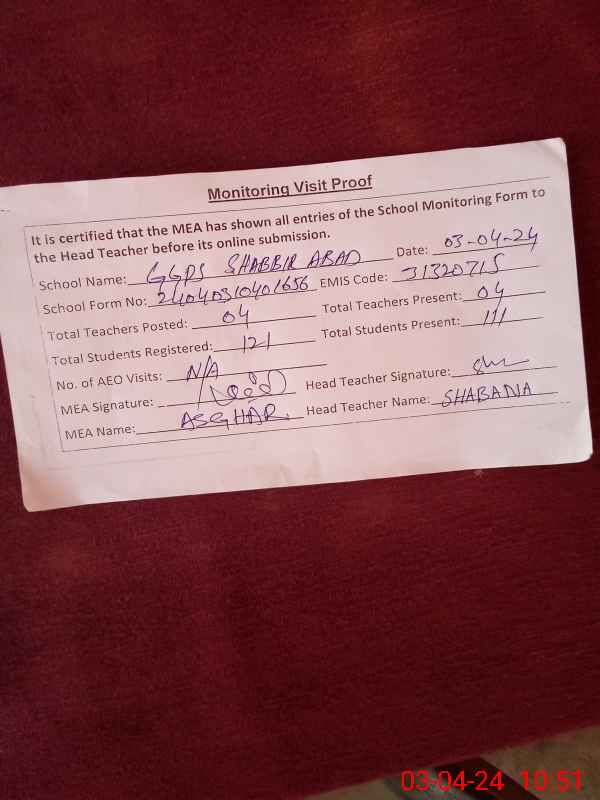 Monitoring Visit Proof
It is certified that the MEA has shown all entries of the School Monitoring Form to
the Head Teacher before its online submission.
School Name: GGPS SHABBIR ABAD Date: 03-04-24
School Form No: 24040310401656 EMIS Code: 31320715
Total Teachers Posted: 04 Total Teachers Present: 04
Total Students Registered: 121 Total Students Present: 111
No. of AEO Visits: N/A
MEA Signature: Head Teacher Signature:
MEA Name: ASGHAR. Head Teacher Name: SHABANA
03-04-24 10:51